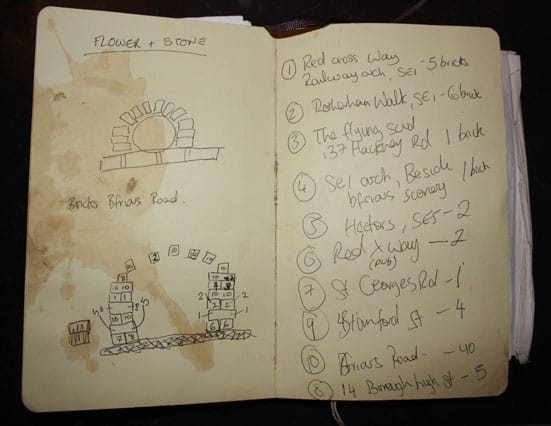 FLOWER + STONE
Bricks Bfriars Road.
① Red cross Way
Railway arch, SE1 - 5 bricks
② Rotherham Walk, SE1 - 6 brick
③ The flying scud
137 Hackney Rd 1 brick
④ SE1 arch, Beside
bfriars, scenery 1 brick
⑤ Hectors, SE1 - 2
⑥ Red X way - 2
(pub)
⑦ St Georges Rd - 1
⑨ Stamford St - 4
⑩ Bfriars Road - 40
⑧ 14 Borough high st - 5